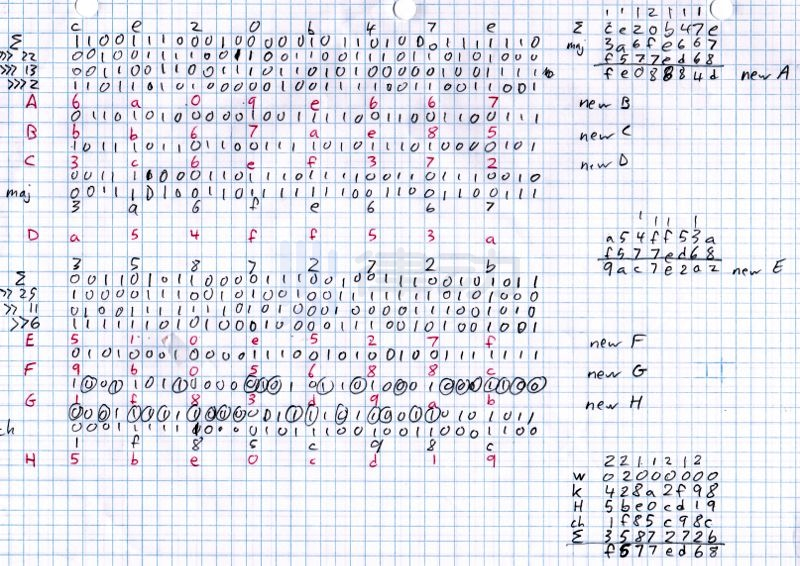 c e 2 0 b 4 7 e
Σ 1 1 0 0 1 1 1 0 0 0 1 0 0 0 0 0 1 0 1 1 0 1 0 0 0 1 1 1 1 1 1 0
>>> 22 0 0 1 0 0 1 1 1 1 0 0 1 1 0 0 1 1 0 0 1 1 1 0 1 1 0 1 0 1 0 0 0
>>> 13 0 0 1 1 0 0 1 1 0 0 1 1 1 0 1 1 0 1 0 1 0 0 0 0 0 1 0 0 1 1 1 1
>>> 2 1 1 0 1 1 0 1 0 1 0 0 0 0 0 1 0 0 1 1 1 1 0 0 1 1 0 0 1 1 0 0 1
A 6 a 0 9 e 6 6 7
0 1 1 0 1 0 1 0 0 0 0 0 1 0 0 1 1 1 1 0 0 1 1 0 0 1 1 0 0 1 1 1
B b b 6 7 a e 8 5
1 0 1 1 1 0 1 1 0 1 1 0 0 1 1 1 1 0 1 0 1 1 1 0 1 0 0 0 0 1 0 1
C 3 c 6 e f 3 7 2
0 0 1 1 1 1 0 0 0 1 1 0 1 1 1 0 1 1 1 1 0 0 1 1 0 1 1 1 0 0 1 0
maj 0 0 1 1 1 0 1 0 0 1 1 0 1 1 1 1 1 1 1 0 0 1 1 0 0 1 1 0 0 1 1 1
3 a 6 f e 6 6 7
D a 5 4 f f 5 3 a
3 5 8 7 2 7 2 b
Σ 0 0 1 1 0 1 0 1 1 0 0 0 0 1 1 1 0 0 1 0 0 1 1 1 0 0 1 0 1 0 1 1
>> 25 1 0 0 0 0 1 1 1 0 0 1 0 1 0 0 1 0 0 1 1 1 1 1 1 1 0 1 0 1 0 0 0
>> 11 0 1 0 0 1 1 1 1 1 1 1 0 1 0 1 0 0 0 1 0 0 0 0 1 1 1 0 0 1 0 1 0
>>6 1 1 1 1 1 1 0 1 0 1 0 0 0 1 0 0 0 0 1 1 1 0 0 1 0 1 0 0 1 0 0 1
E 5 1 0 e 5 2 7 f
0 1 0 1 0 0 0 1 0 0 0 0 1 1 1 0 0 1 0 1 0 0 1 0 0 1 1 1 1 1 1 1
F 9 b 0 5 6 8 8 c
1 0 0 1 1 0 1 1 0 0 0 0 0 1 0 1 0 1 1 0 1 0 0 0 1 0 0 0 1 1 0 0
G 1 f 8 3 d 9 a b
0 0 0 1 1 1 1 1 1 0 0 0 0 0 1 1 1 1 0 1 1 0 0 1 1 0 1 0 1 0 1 1
ch 0 0 0 1 1 1 1 1 1 0 0 0 0 1 0 1 1 1 0 0 1 0 0 1 1 0 0 0 1 1 0 0
1 f 8 5 c 9 8 c
H 5 b e 0 c d 1 9
1 1 1 2 1 1 1
Σ c e 2 0 b 4 7 e
maj 3 a 6 f e 6 6 7
f 5 7 7 e d 6 8
f e 0 8 8 8 4 d new A
new B
new C
new D
1 1 1 1
a 5 4 f f 5 3 a
f 5 7 7 e d 6 8
9 a c 7 e 2 a 2 new E
new F
new G
new H
2 2 1 1 2 1 2
W 0 2 0 0 0 0 0 0
k 4 2 8 a 2 f 9 8
H 5 b e 0 c d 1 9
ch 1 f 8 5 c 9 8 c
Σ 3 5 8 7 2 7 2 b
f 5 7 7 e d 6 8